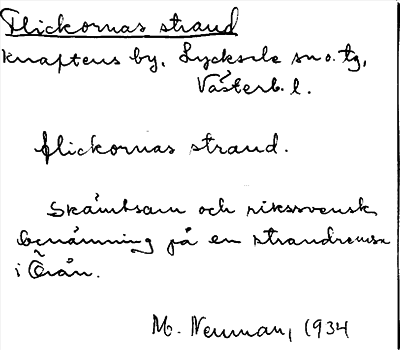 Flickornas strand
Knaftens by, Lycksele sn o. tg,
Västerb. l.
flickornas strand.
Skämtsam och rikssvensk
benämning på en strandremsa
i Örån.
M. Neuman, 1934